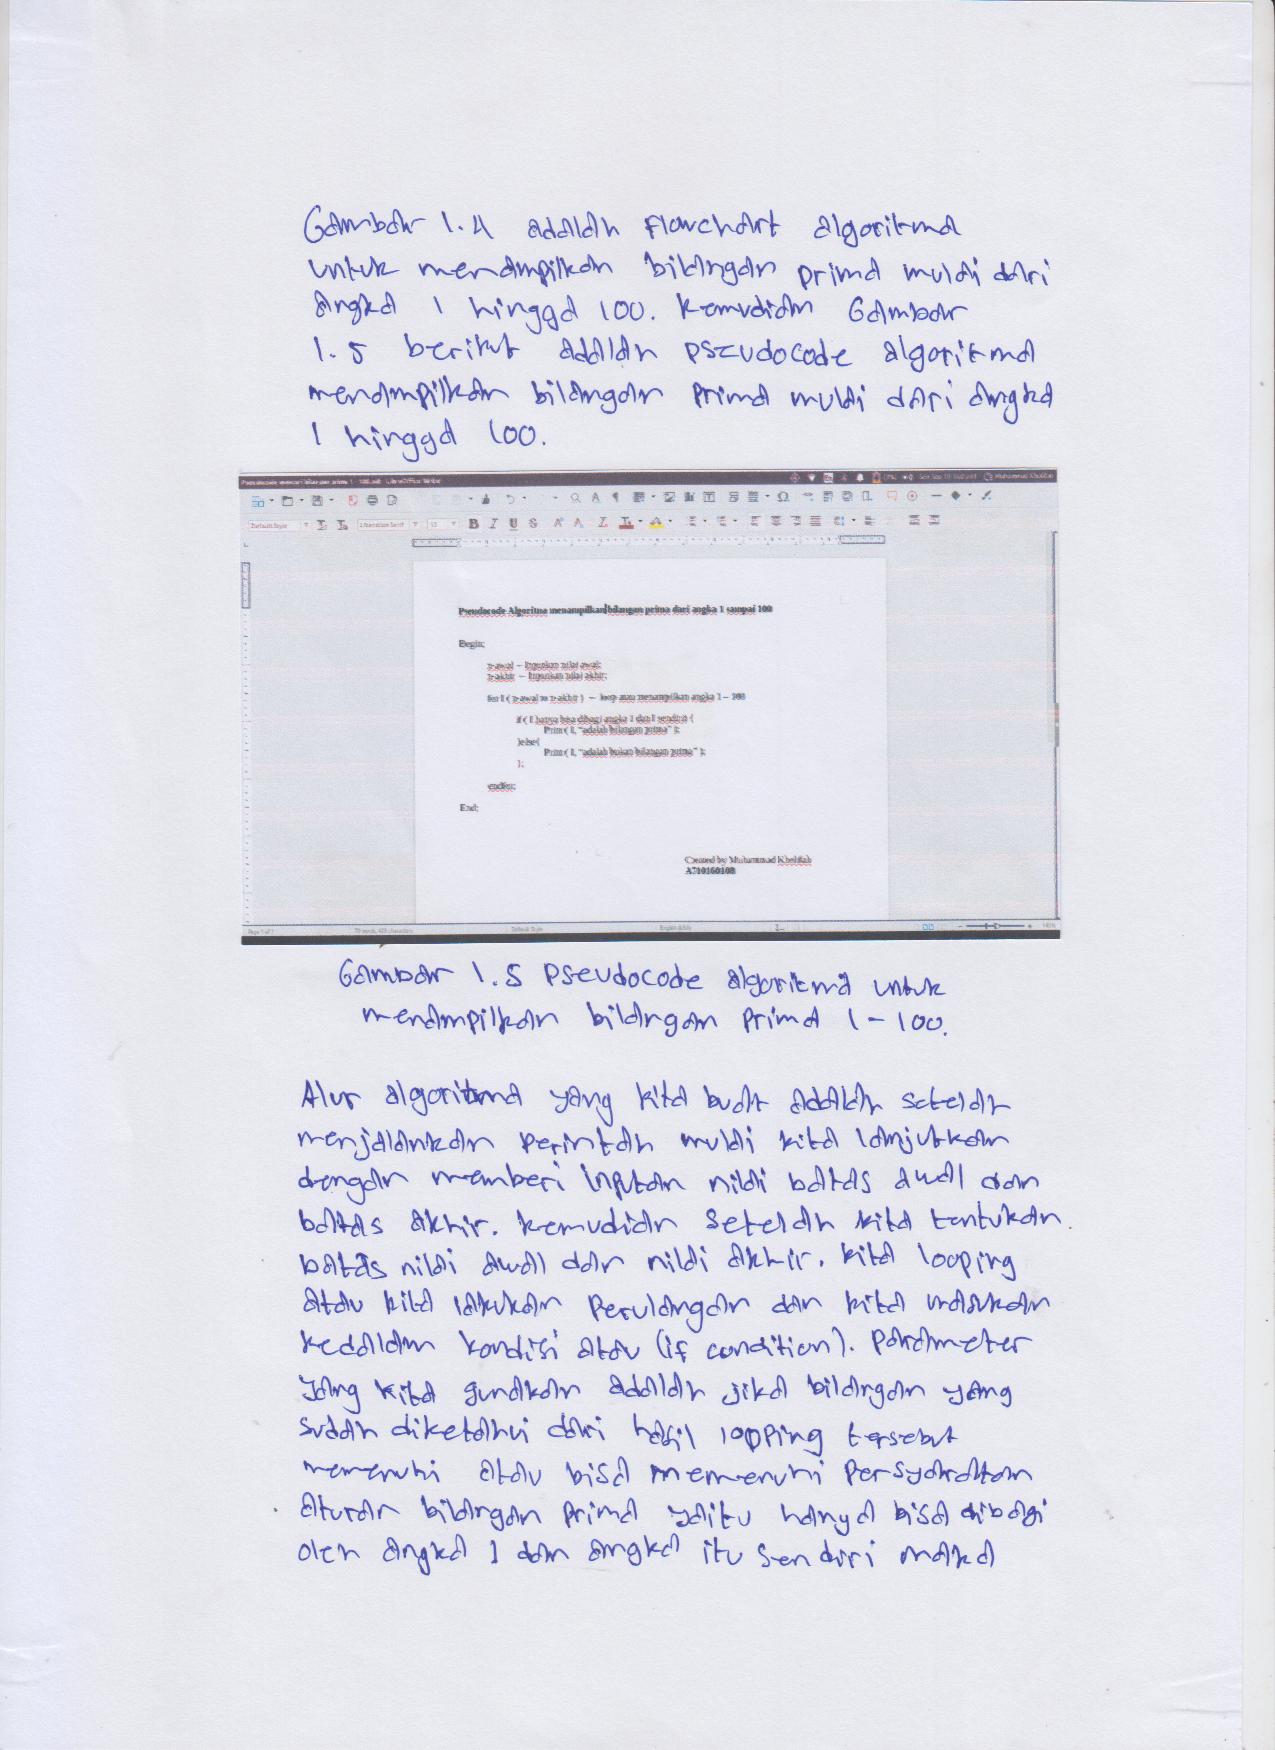 Gambar 1.4 adalah flowchart algoritma
untuk menampilkan bilangan prima mulai dari
angka 1 hingga 100. kemudian Gambar
1.5 berikut adalah pseudocode algoritma
menampilkan bilangan prima mulai dari angka
1 hingga 100.
Default Style
Liberation Serif
Pseudocode Algoritma menampilkan bilangan prima dari angka 1 sampai 100
Begin;
n-awal – Inputkan nilai awal;
n-akhir – Inputkan nilai akhir;
for I ( n-awal to n-akhir ) – loop atau menampilkan angka 1 – 100
if ( I hanya bisa dibagi angka 1 dan I sendiri) {
Print ( I, "adalah bilangan prima" );
}else{
Print ( I, "adalah bukan bilangan prima" );
};
endfor;
End;
Created by Muhammad Kholifah
A710160108
Page 1 of 1
Default Style
Gambar 1.5 Pseudocode algoritma untuk
menampilkan bilangan prima 1 - 100.
Alur algoritma yang kita buat adalah setelah
menjalankan perintah mulai kita lanjutkan
dengan memberi inputan nilai batas awal dan
batas akhir. kemudian setelah kita tentukan
batas nilai awal dan nilai akhir. kita looping
atau kita lakukan perulangan dan kita masukan
kedalam kondisi atau (if condition). parameter
yang kita gunakan adalah jika bilangan yang
sudah diketahui dari hasil looping tersebut
memenuhi atau bisa memenuhi persyaratan
aturan bilangan prima yaitu hanya bisa dibagi
oleh angka 1 dan angka itu sendiri maka